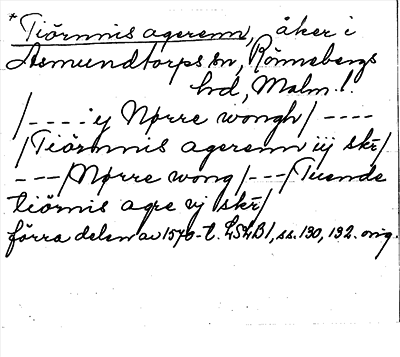 * Tiörnnis agerenn, åker i
Asmundtorps sn, Rönnebergs
hd, Malm. l.
/----ij Nørre wongh/----
/Tiörnnis agerenn iij skr/
---/Nørre wong/---/Tuende
tiörnis agre vj skr/
förra delen av 1570-t. LSLB1, ss. 130, 132. orig.